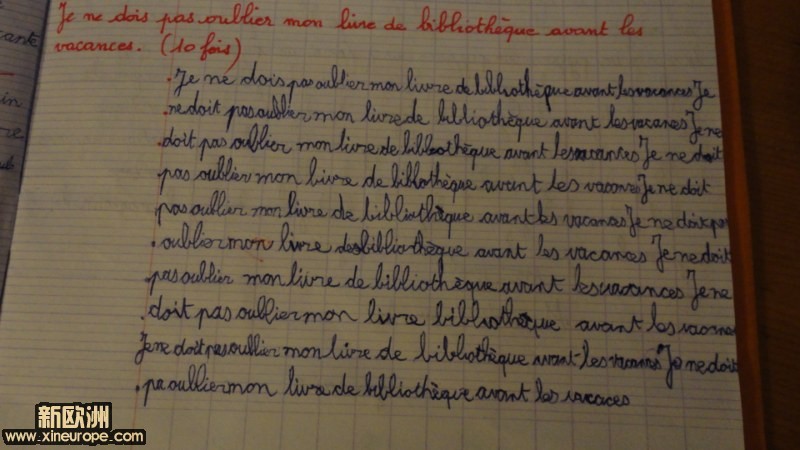 Je ne dois pas oublier mon livre de bibliothèque avant les
vacances. (10 fois)
Je ne dois pas oublier mon livre de bibliothèque avant les vacances Je
ne doit pas oublier mon livre de bibliothèque avant les vacances Je ne
doit pas oublier mon livre de bibliothèque avant les vacances Je ne doit
pas oublier mon livre de bibliothèque avant les vacances Je ne doit
pas oublier mon livre de bibliothèque avant les vacances Je ne doit pas
oublier mon livre de bibliothèque avant les vacances Je ne doit
pas oublier mon livre de bibliothèque avant les vacances Je ne
doit pas oublier mon livre bibliothèque avant les vacances
Je ne doit pas oublier mon livre de bibliothèque avant les vacances Je ne doit
pa oublier mon livre de bibliothèque avant les vacaces
in
新欧洲
www.xineurope.com